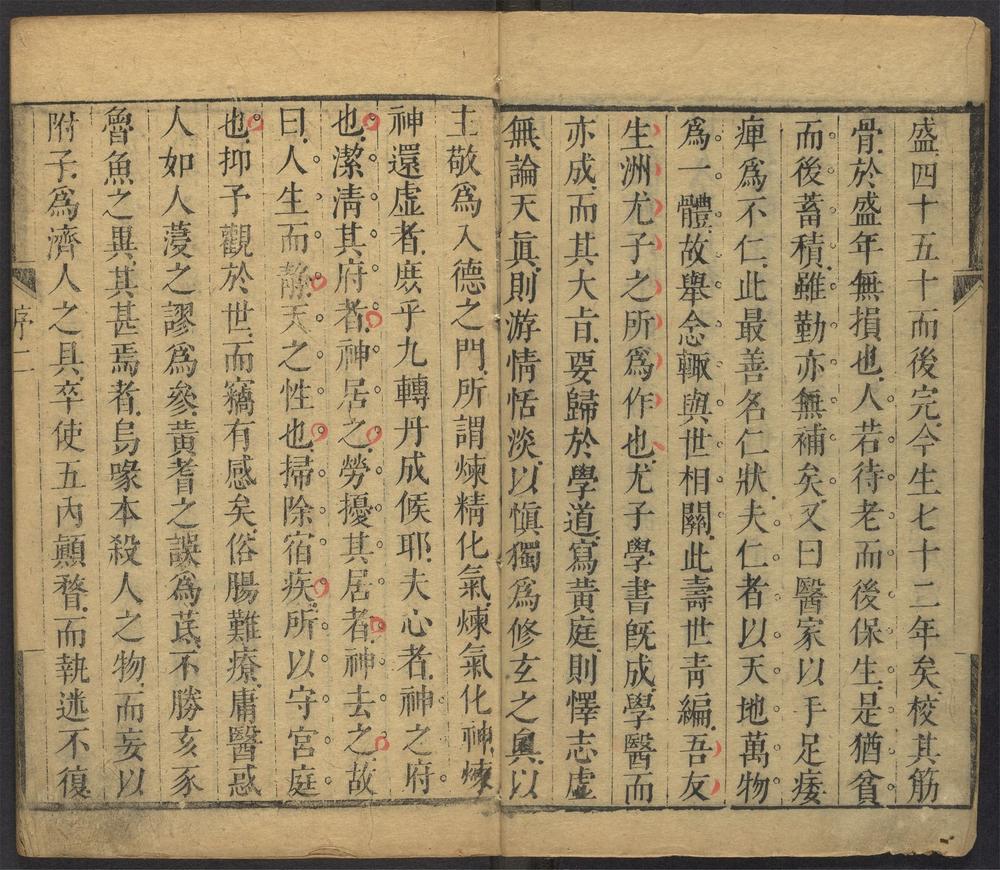 盛四十五十而後完今生七十二年矣校其筋
骨於盛年無損也人若待老而後保生是猶貧
而後蓄積雖勤亦無補矣又曰醫家以手足痿
痺爲不仁此最善名仁狀夫仁者以天地萬物
爲一體故舉念輒與世相關此壽世靑編吾友
生洲尤子之所爲作也尤子學書旣成學醫而
亦成而其大㫖要歸於學道寫黃庭則懌志虛
無論天眞則游情恬淡以愼獨爲修玄之奧以
主敬爲入德之門所謂煉精化氣煉氣化神煉
神還虛者庶乎九轉丹成候耶夫心者神之府
也潔淸其府者神居之勞擾其居者神去之故
曰人生而靜天之性也掃除宿疾所以守宮庭
也抑予觀於世而竊有感矣俗腸難療庸醫惑
人如人蓡之謬爲參黃耆之誤爲茋不勝亥豕
魯魚之異其甚焉者烏喙本殺人之物而妄以
附子爲濟人之具卒使五內顚瞀而執迷不復
序二